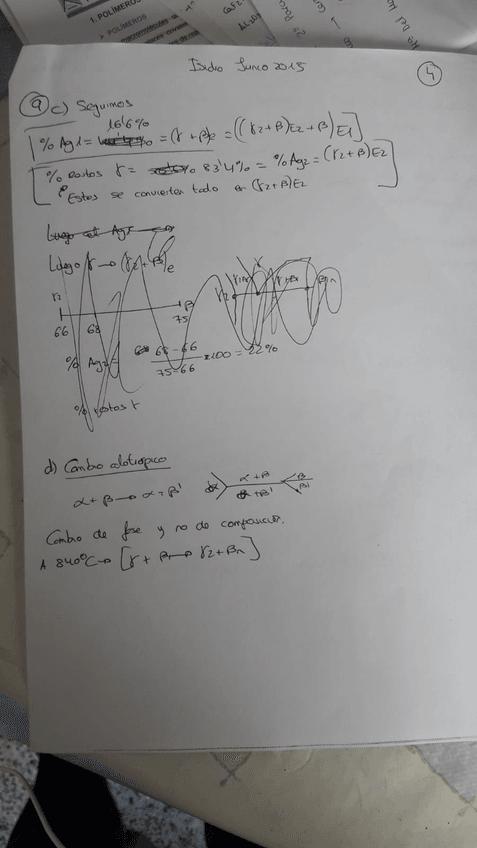 1. POLÍMEROS
Isidro Junio 2015
4
9 c) Seguimos
16'6%
% Ag1 = = (γ + β)e = ((γ2 + β)E2 + β)E1
% Restos γ = 83'4% = % Ag2 = (γ2 + β)E2
Estos se convierten todo en (γ2 + β)E2
Luego γ → (γ2 + β)e
γ2 β
66 68 75
% Ag2 = 68 - 66 / 75 - 66 x 100 = 22%
% restos γ
d) Cambio alotrópico
α + β → α = β'
α + β β
α + β' β'
Cambio de fase y no de composición.
A 840ºC → [γ + β → γ2 + βn]